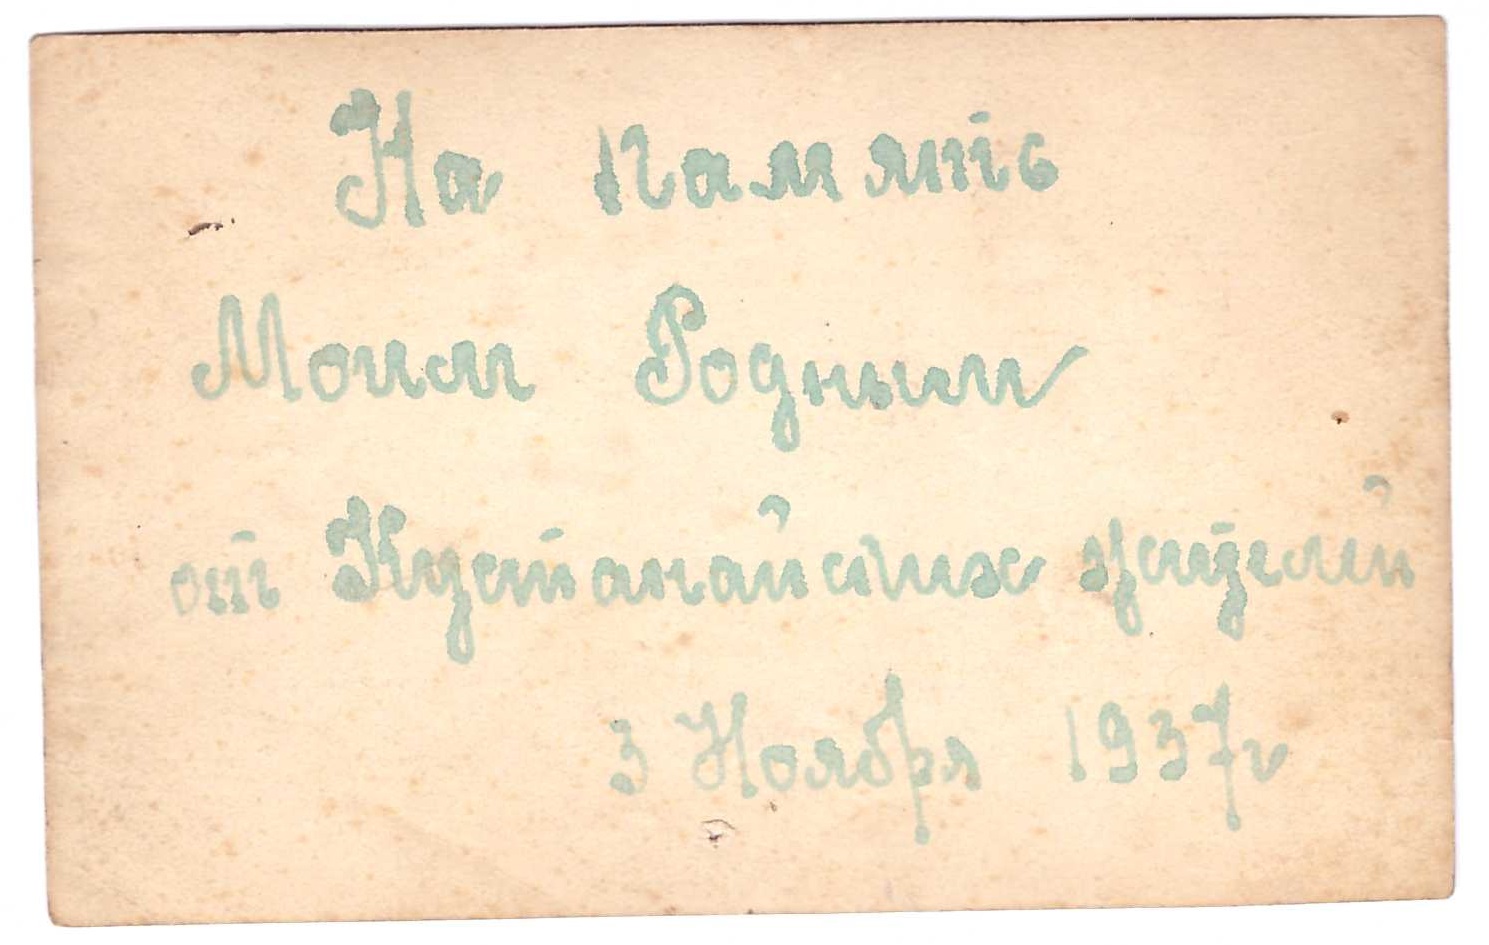 На память
Моим Родным
от Кустанайских жителей
3 Ноября 1937г